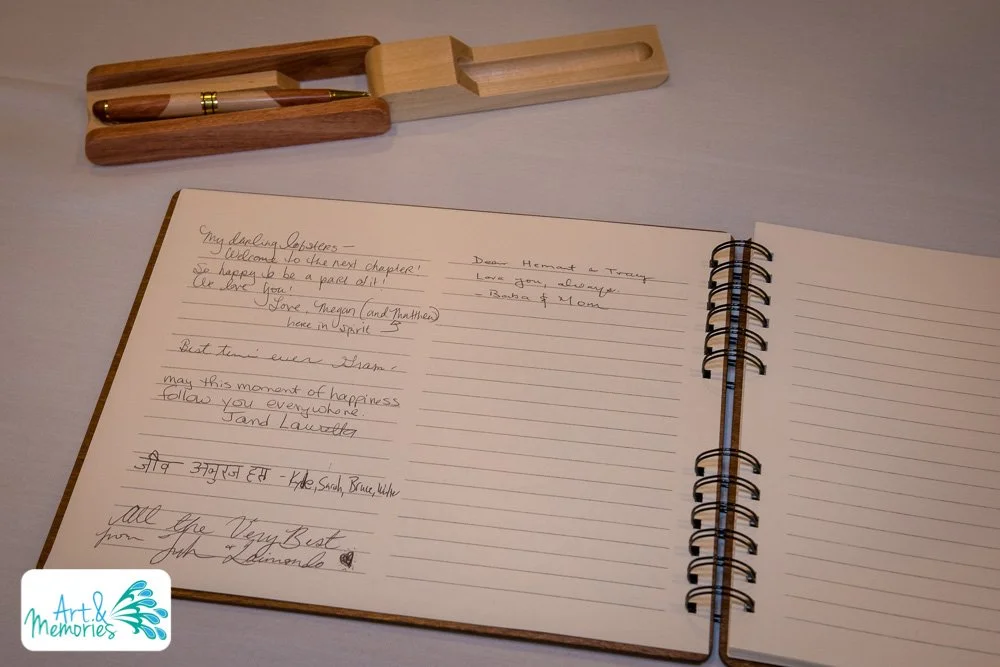 My darling lobsters –
Welcome to the next chapter!
So happy to be a part of it!
We love you!
Love, Megan (and Matthew)
here in spirit
Best ever
may this moment of happiness
follow you everywhere.
J and
जीव अनुरज हस - Kyle, Sarah, Bruce,
All the Very Best
from &
Dear Hemant & Tracy
Love you, always.
- Baba & Mom
Art &
Memories